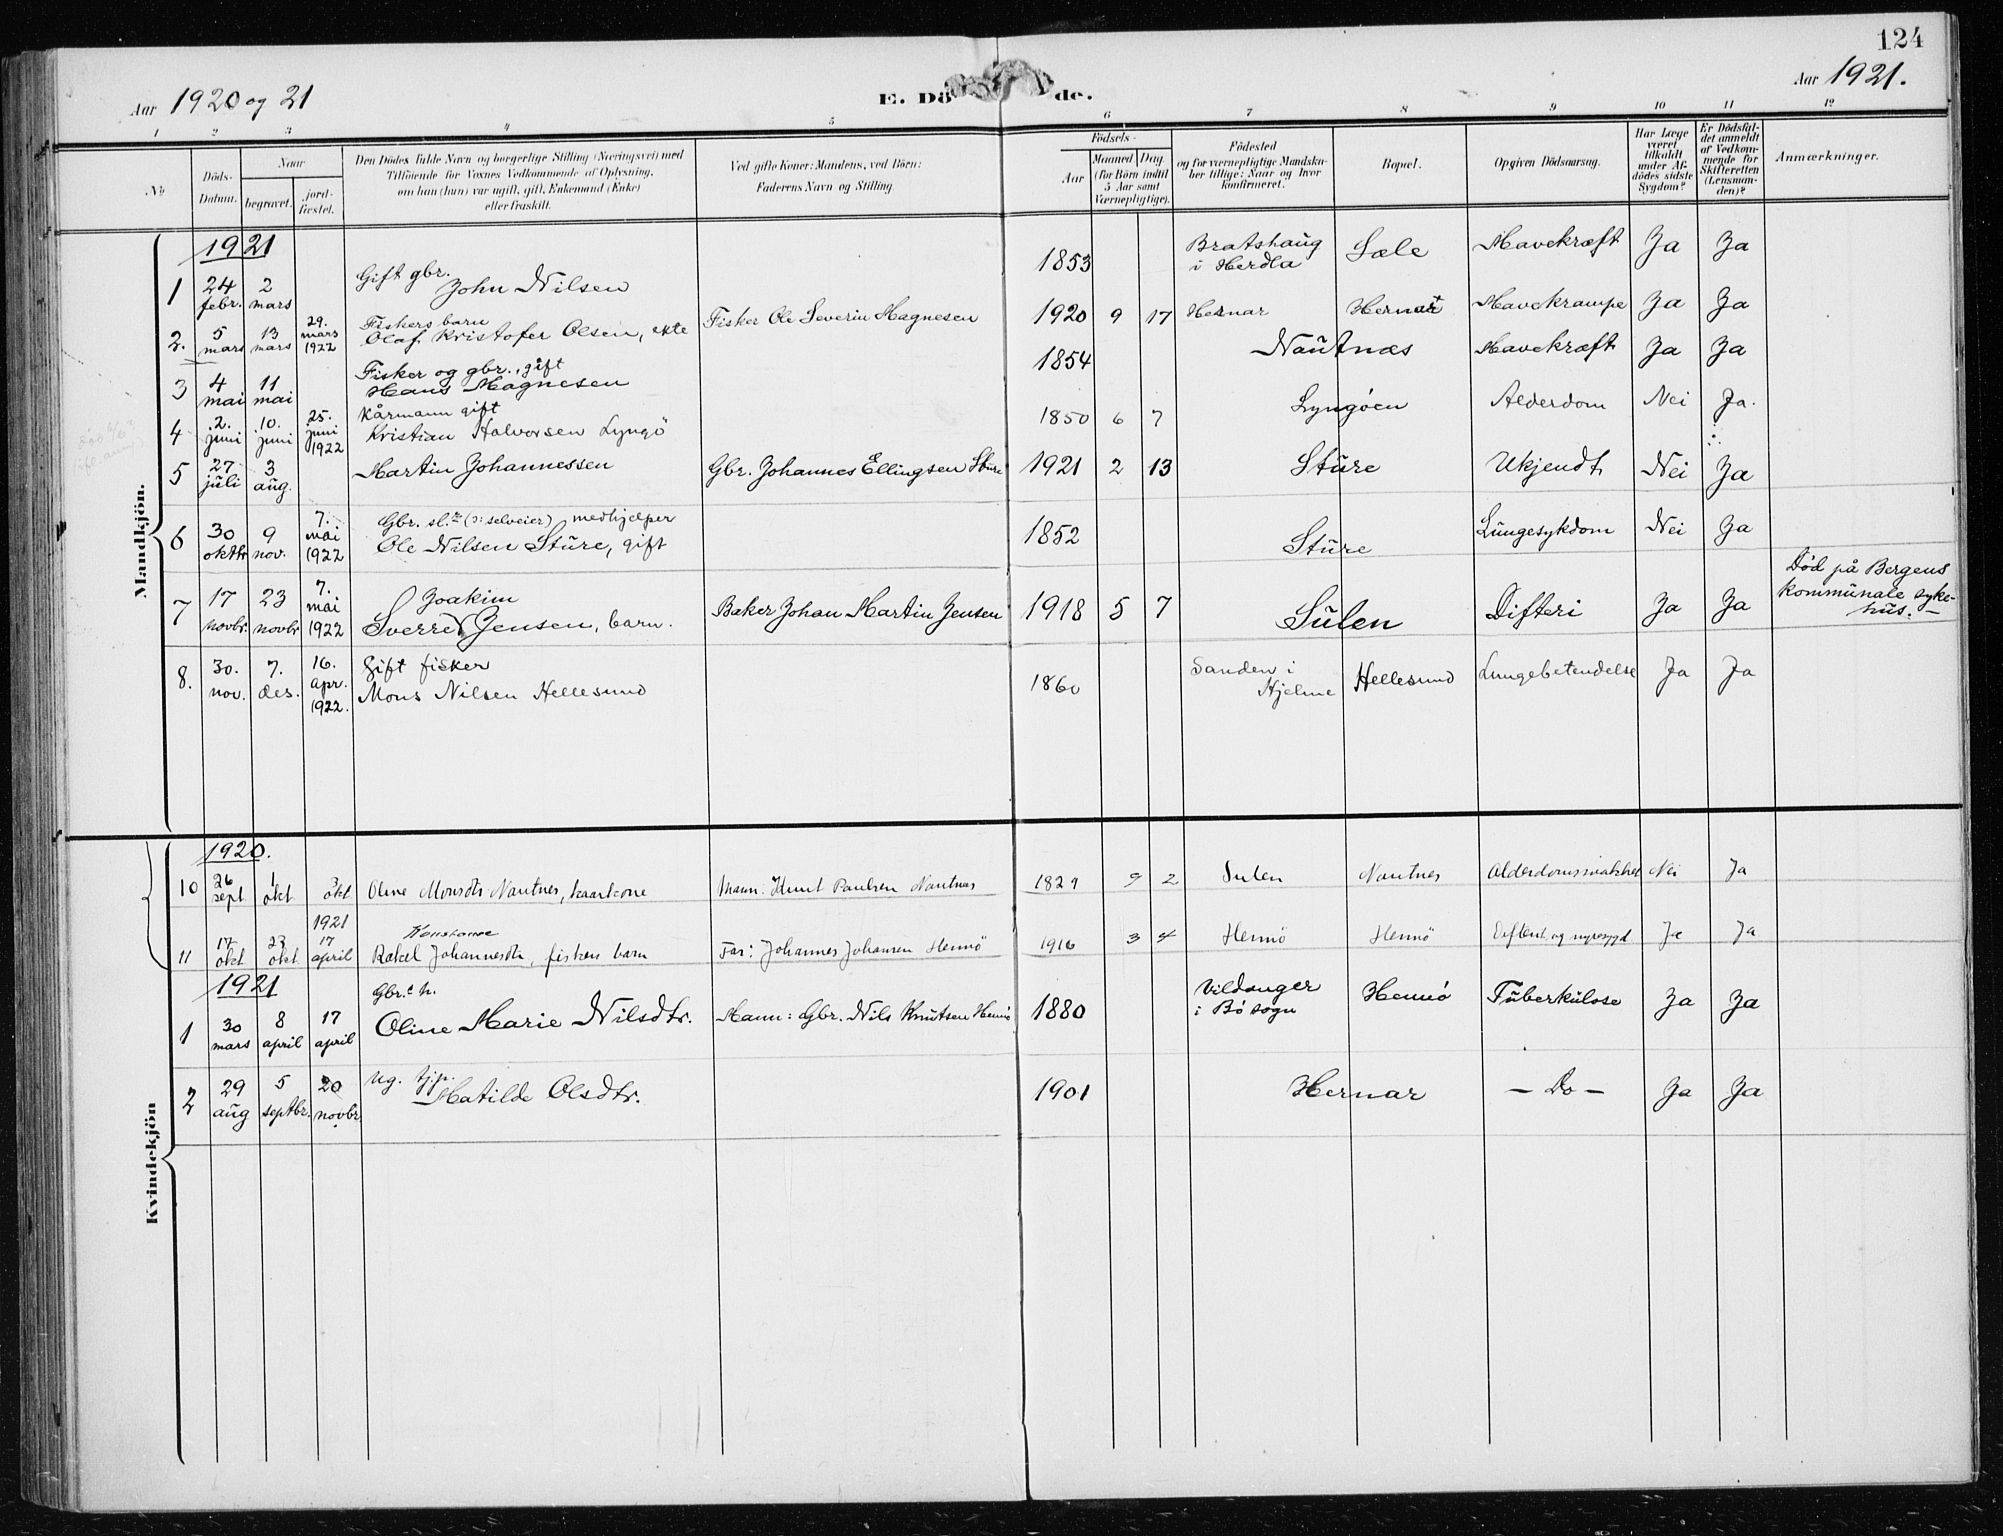 124
Aar 1920 og 21
E. Döde.
Aar 1921.
1 2 3 4 5 6 7 8 9 10 11 12
No
Döds-Datum.
Naar
begravet.
jord-fæstet.
Den Dödes fulde Navn og borgerlige Stilling (Næringsvei) med
Tilföiende for Voxnes Vedkommende af Oplysning,
om han (hun) var ugift, gift, Enkemand (Enke)
eller fraskilt.
Ved gifte Koner: Mandens, ved Börn:
Faderens Navn og Stilling.
Födsels-
Aar
Maaned Dag.
(for Börn indtil
5 Aar samt
Værnepligtige).
Födested
og for værnepligtige Mandska-
ber tillige: Naar og hvor
konfirmeret.
Bopæl.
Opgiven Dödsaarsag.
Har Læge
været
tilkaldt
under Af-
dödes sidste
Sygdom?
Er Dödsfal-
det anmeldt
af Vedkom-
mende for
Skifteretten
(Lensman-
den)?
Anmærkninger.
Mandkjön.
1921
1 24 febr. 2 mars Gift gbr. John Nilsen 1853 Bratshaug i Herdla Sæle Mavekræft Ja Ja
2. 5 mars 13 mars 29. mars 1922 Fiskers barn Olaf Kristofer Olsen, ekte Fisker Ole Severin Magnesen 1920 9 17 Hernar Hernar Mavekrampe Ja Ja
3 4 mai 11 mai Fisker og gbr., gift Hans Magnesen 1854 Nautnæs Mavekræft Ja Ja
4 2. juni 10. juni 25. juni 1922 Kårmann gift Kristian Halvorsen Lyngö 1850 6 7 Lyngöen Alderdom Nei Ja.
5 27 juli 3 aug. Martin Johannessen Gbr. Johannes Ellingsen Sture 1921 2 13 Sture Ukjendt Nei Ja
6 30 oktbr 9 nov. 7. mai 1922 Gbr. sl.r (ɔ: selveier) medhjelper Ole Nilsen Sture, gift 1852 Sture Lungesykdom Nei Ja
7 17 novbr. 23 novbr 7. mai 1922 Joakim Sverre Jensen, barn. Baker Johan Martin Jensen 1918 5 7 Sulen Difteri Ja Ja Död på Bergens kommunale syke-hus. –
8. 30. nov. 7. des. 16. apr. 1922. Gift fisker Mons Nilsen Hellesund 1860 Sanden i Hjelme Hellesund Lungebetendelse Ja Ja
Kvindekjön
1920.
10 26 sept 1 okt okt Oline Monsdtr Nautnes, kaarkone Mann: Knut Paulsen Nautnes 1829 9 2 Sulen Nautnes Alderdomssvakhet Nei Ja
11 17 okt 23 okt 1921 17 april Konstanse Rakel Johannesdtr, fiskers barn Far: Johannes Johansen Hennö 1916 3 4 Hennö Hennö Difteri og nyresygd Ja Ja
1921
1 30 mars 8 april 17 april Gbr. h. Oline Marie Nilsdtr. Mann: Gbr. Nils Knutsen Hennö 1880 Vildanger i Bö sogn Hennö Tuberkulose Ja Ja
2 29 aug 5 septbr. 20 novbr. ug. tjp. Matilde Olsdtr. 1901 Hernar – Do – Ja Ja